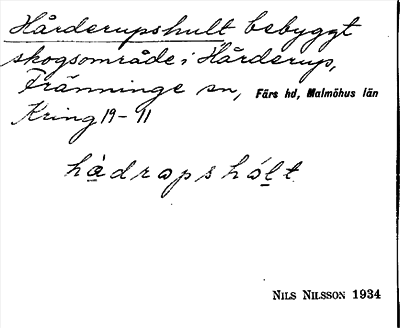 Hårderupshult bebyggt
skogsområde i Hårderup,
Fränninge sn, Färs hd, Malmöhus län
Kring 19-11
hȧdrapshólt
NILS NILSSON 1934